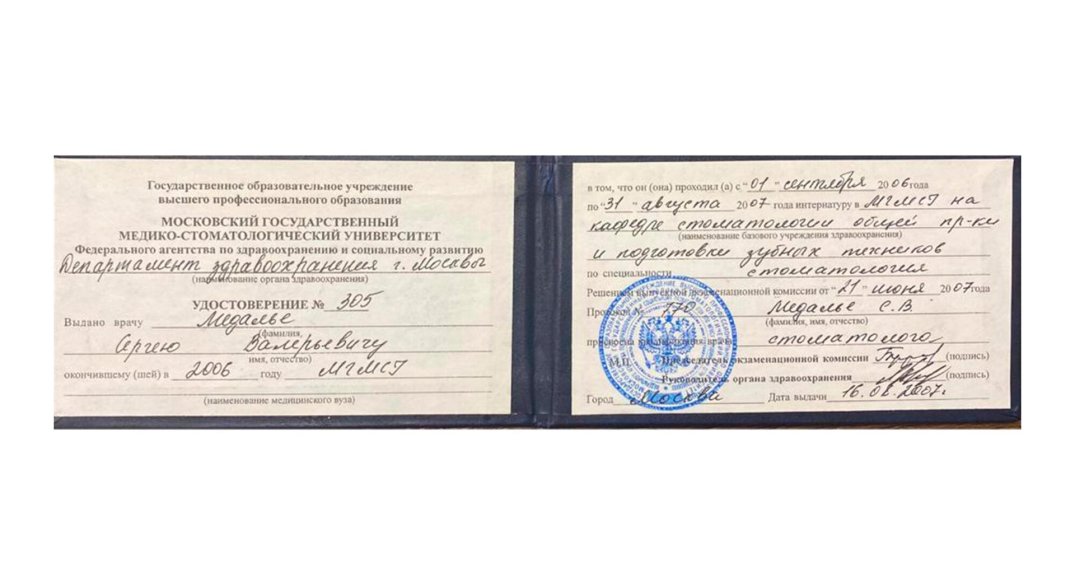 Государственное образовательное учреждение
высшего профессионального образования
МОСКОВСКИЙ ГОСУДАРСТВЕННЫЙ
МЕДИКО-СТОМАТОЛОГИЧЕСКИЙ УНИВЕРСИТЕТ
Федерального агентства по здравоохранению и социальному развитию
Департамент здравоохранения г. Москвы
(наименование органа здравоохранения)
УДОСТОВЕРЕНИЕ № 305
Выдано врачу Медалье
(фамилия,
Сергею Валерьевичу
имя, отчество)
окончившему (шей) в 2006 году МГМСУ
(наименование медицинского вуза)
в том, что он (она) проходил (а) с "01" сентября 2006 года
по "31" августа 2007 года интернатуру в МГМСУ на
кафедре стоматологии общей пр-ки
(наименование базового учреждения здравоохранения)
и подготовки зубных техников
по специальности стоматология
Решением выпускной экзаменационной комиссии от "21" июня 2007 года
Протокол № 770 Медалье С.В.
(фамилия, имя, отчество)
присвоена квалификация врача стоматолога
М.П. Председатель экзаменационной комиссии (подпись)
Руководитель органа здравоохранения (подпись)
Город Москва Дата выдачи 16.08.2007г